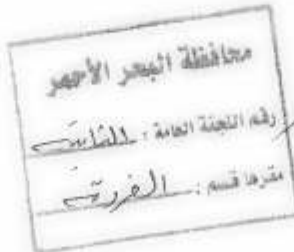 محافظة البحر الأحمر
رقم اللجنة العامة : الثانية
مقرها قسم :